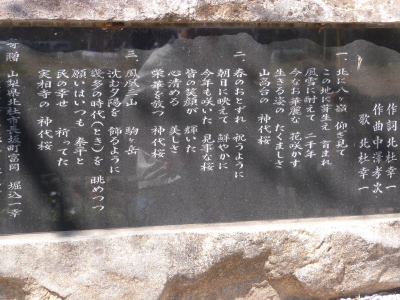 作詞 北杜幸一
作曲 中澤孝次
歌 北杜幸一
一、北に八ヶ岳 仰ぎ見て
この地に芽生え 育まれ
風雪に耐えて 二千年
今なお華麗な 花咲かす
生きる姿の たくましさ
山高台の 神代桜
二、春のおとずれ 祝うように
朝日に映えて 鮮やかに
今年も咲いた 見事な桜
皆の笑顔が 輝いた
心清める 美しさ
栄華を放つ 神代桜
三、鳳凰山 駒ヶ岳
沈む夕陽を 飾るように
幾多の時代(とき)を 眺めつつ
願いはいつも 泰平と
民の幸せ 祈ってた
実相寺の 神代桜
寄贈 山梨県北杜市長坂町富岡 堀込一幸